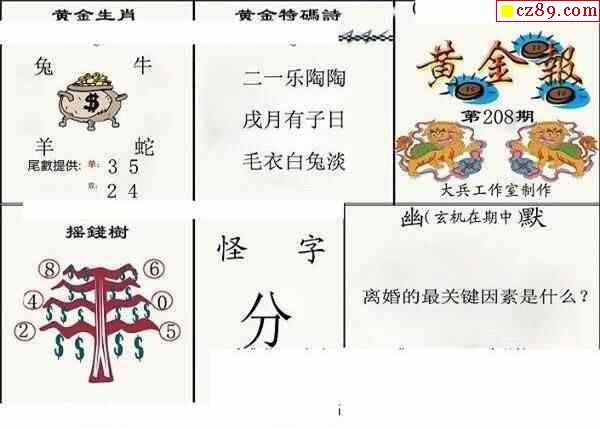 cz89.com
黄金生肖
兔 牛
$
羊 蛇
尾數提供: 单: 3 5
双: 2 4
黄金特碼詩
二一乐陶陶
戌月有子日
毛衣白兔淡
黄金報
第208期
大兵工作室制作
摇錢樹
8 6
4 0
2 5
$ $ $ $ $ $ $ $
怪字
分
幽(玄机在期中)默
离婚的最关键因素是什么?
i